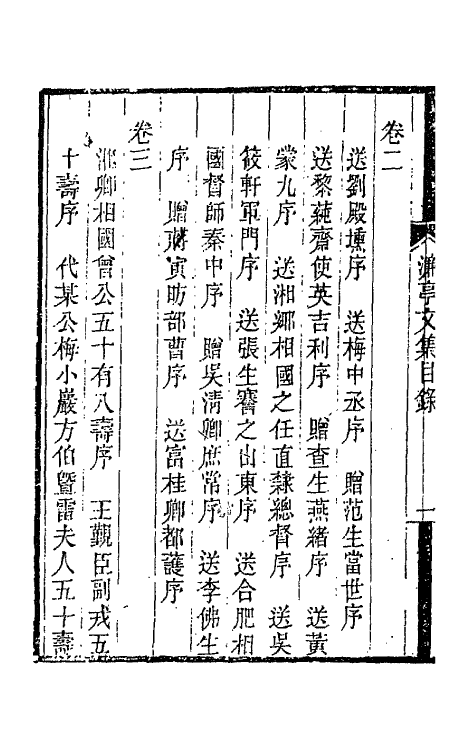 濂亭文集目錄
一
卷二
送劉殿壎序　送梅中丞序　贈范生當世序
送黎蒓齋使英吉利序　贈查生燕緒序　送黃
蒙九序　送湘鄉相國之任直隸總督序　送吳
筱軒軍門序　送張生謇之山東序　送合肥相
國督師秦中序　贈吳清卿庶常序　送李佛生
序　贈蔣寅昉部曹序　送富桂卿都護序
卷三
湘鄉相國曾公五十有八壽序　王覲臣副戎五
十壽序　代某公梅小巖方伯暨雷夫人五十壽